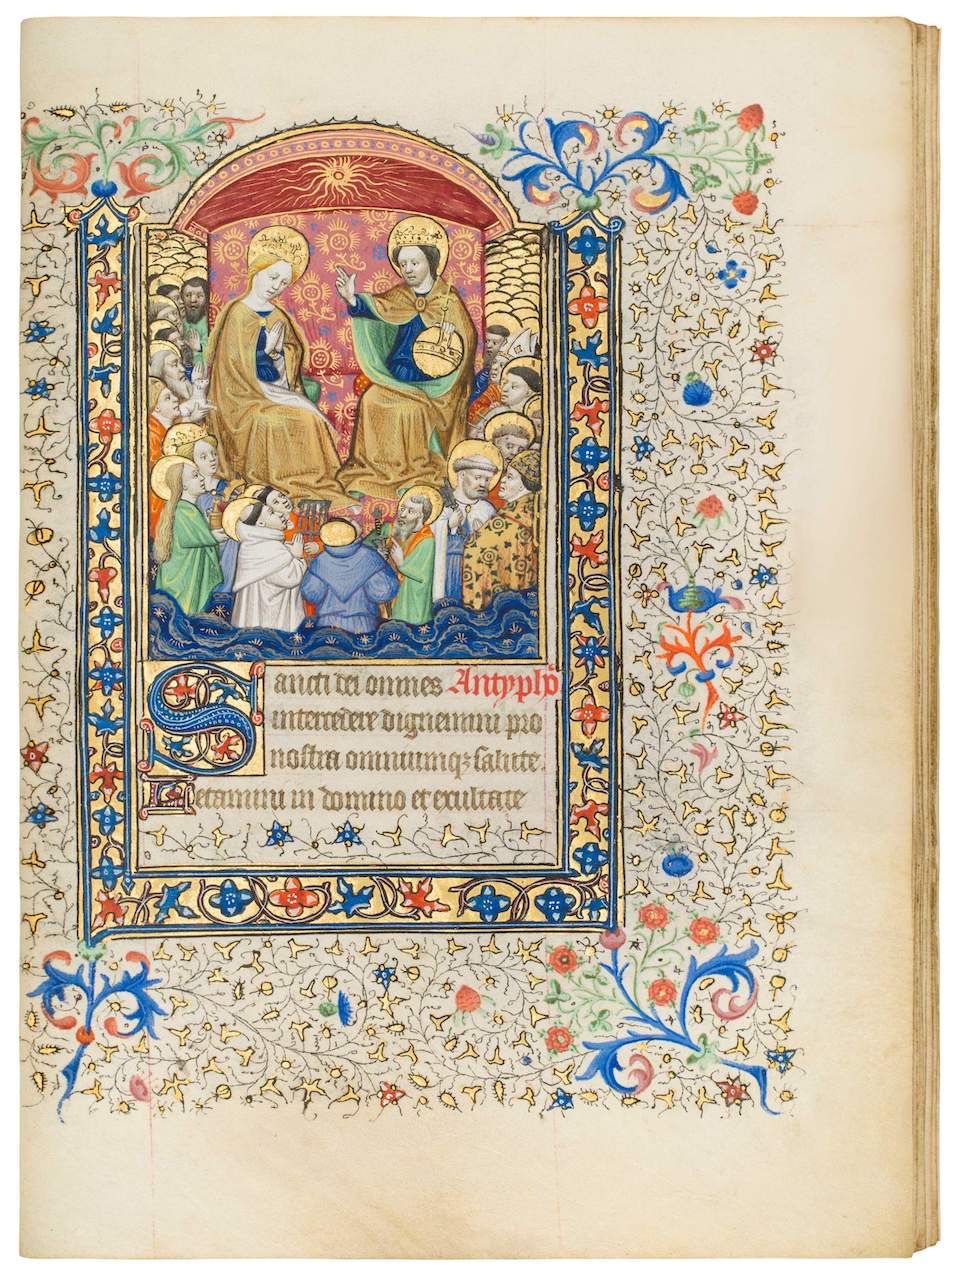 Sancti dei omnes Antyph̃.
intercedere dignemini pro
nostra omniumq; salute.
Letamini in domino et exultate